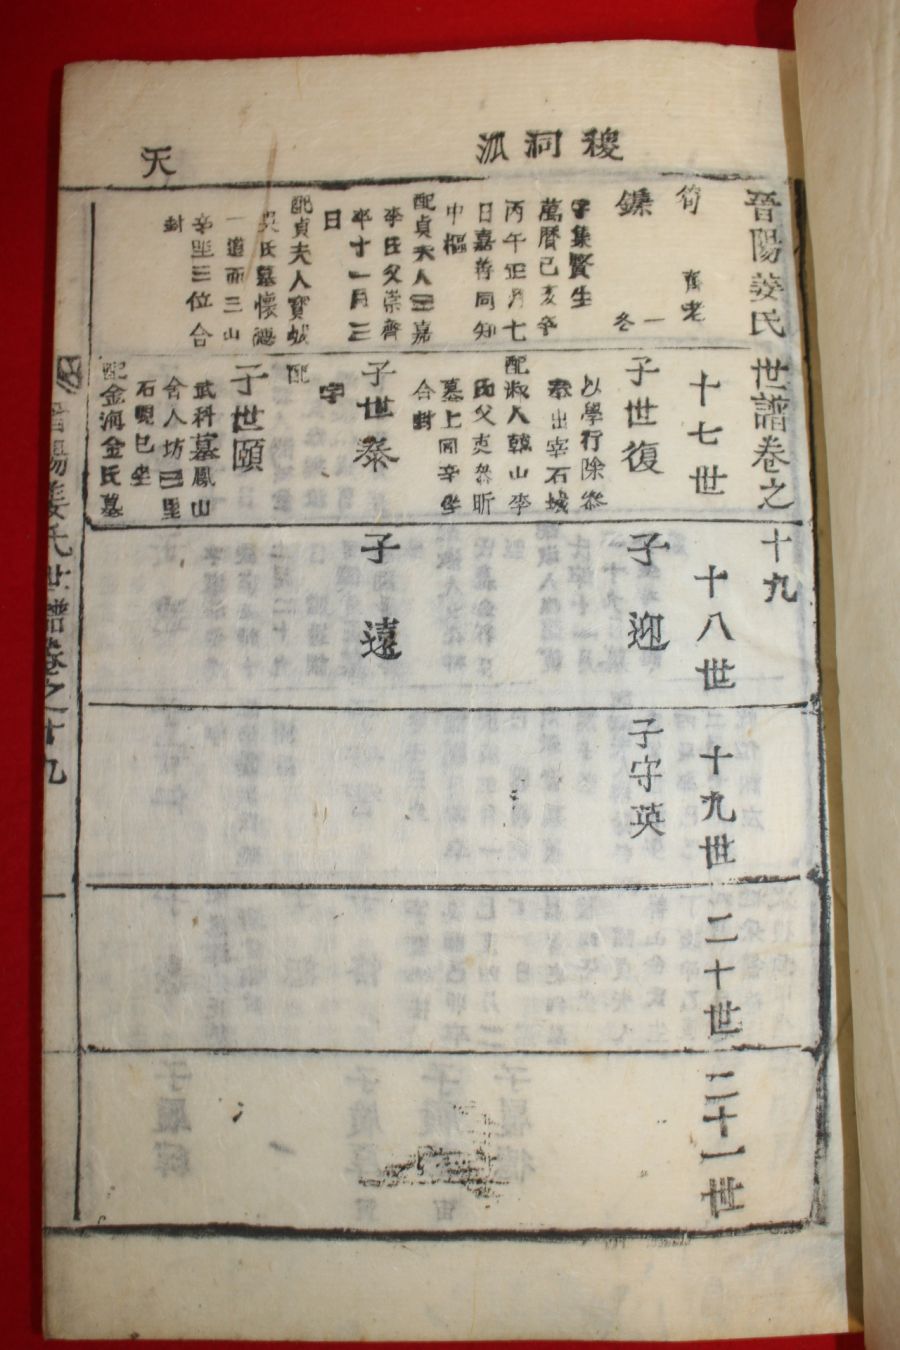 天
稷洞派
晉陽姜氏世譜卷之十九
筍 齊老
十七世
十八世
十九世
二十世
二十一世
鏶 一 冬
字集賢生
萬曆己亥卒
丙午正月七
日嘉善同知
中樞
配貞夫人
李氏父崇齊
卒十一月三
日
配貞夫人寶城
吳氏墓懷德
一道面三山
辛坐三位合
封
子世復
以學行除
出宰石城
配淑人韓山李
氏父
墓上同辛坐
合封
子世泰
字
配
子世頤
武科墓鳳山
舍人坊三里
石峴巳坐
配金海金氏墓
子迎
子遠
子守英
晋陽姜氏世譜卷之十九
一